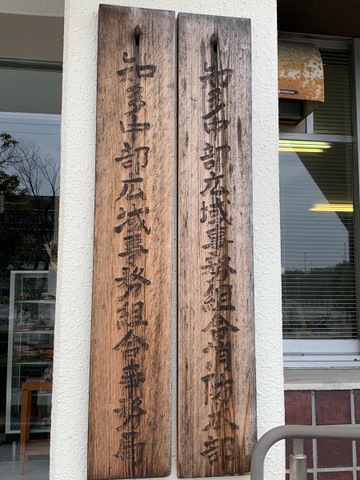 知多中部広域事務組合消防本部
知多中部広域事務組合事務局